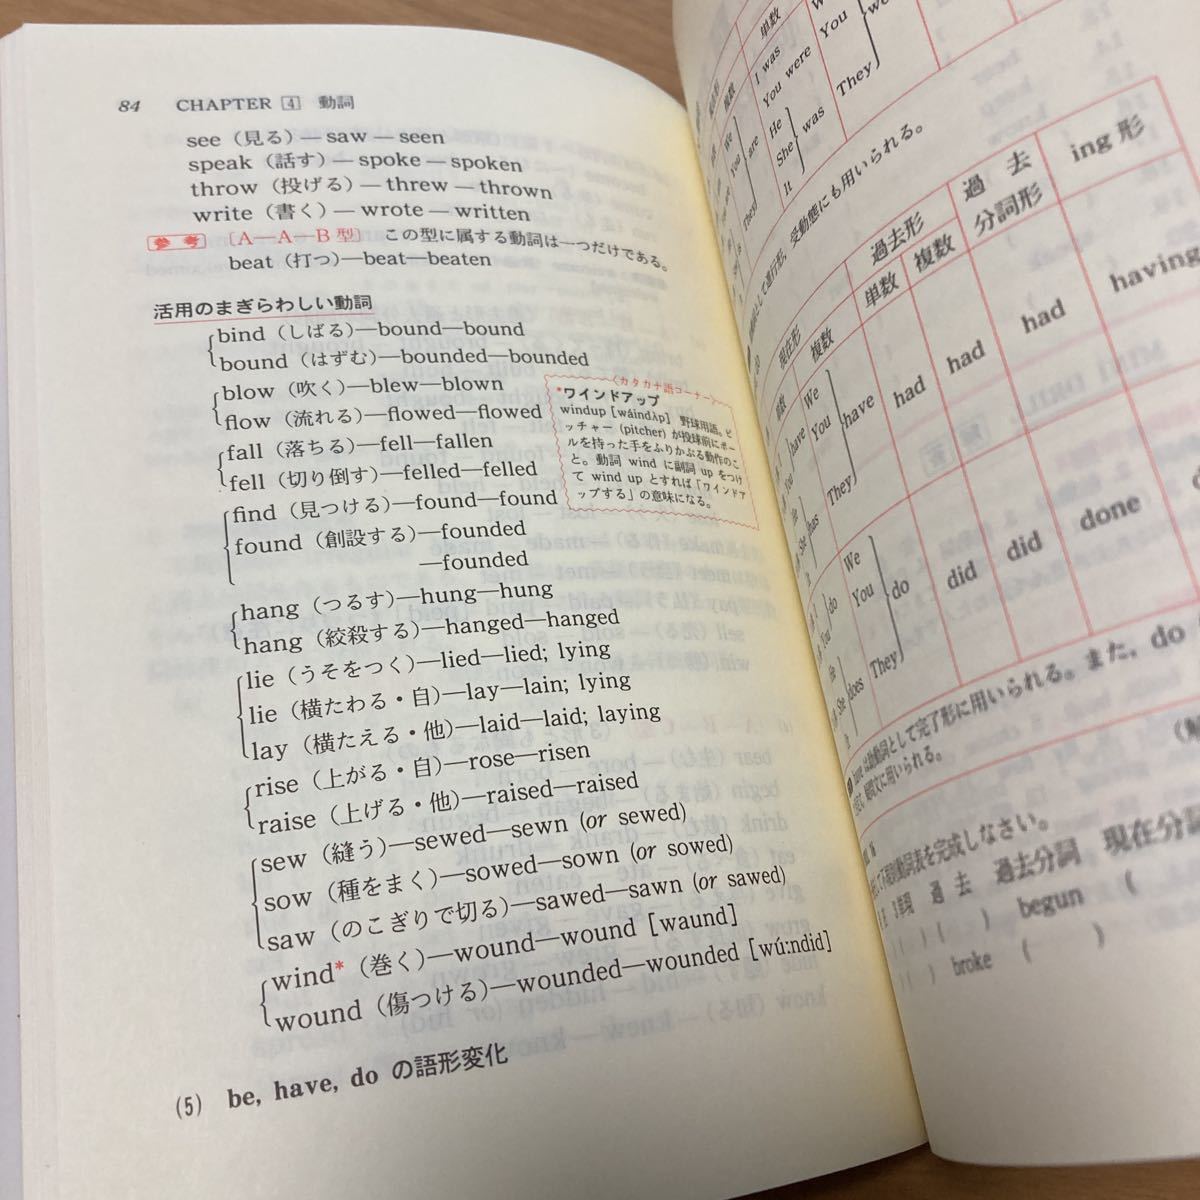 84 CHAPTER 4 動詞
see（見る）— saw — seen
speak（話す）— spoke — spoken
throw（投げる）— threw — thrown
write（書く）— wrote — written
参考 〔A—A—B 型〕 この型に属する動詞は一つだけである。
beat（打つ）—beat—beaten
活用のまぎらわしい動詞
bind（しばる）—bound—bound
bound（はずむ）—bounded—bounded
blow（吹く）—blew—blown
flow（流れる）—flowed—flowed
fall（落ちる）—fell—fallen
fell（切り倒す）—felled—felled
find（見つける）—found—found
found（創設する）—founded
—founded
hang（つるす）—hung—hung
hang（絞殺する）—hanged—hanged
lie（うそをつく）—lied—lied; lying
lie（横たわる・自）—lay—lain; lying
lay（横たえる・他）—laid—laid; laying
rise（上がる・自）—rose—risen
raise（上げる・他）—raised—raised
sew（縫う）—sewed—sewn (or sewed)
sow（種をまく）—sowed—sown (or sowed)
saw（のこぎりで切る）—sawed—sawn (or sawed)
wind*（巻く）—wound—wound [waund]
wound（傷つける）—wounded—wounded [wú:ndid]
(5) be, have, do の語形変化
〈カタカナ語コーナー〉
*ワインドアップ
windup [wáindʌp] 野球用語。ピ
ッチャー (pitcher) が投球前にボー
ルを持った手をふりかぶる動作のこ
と。動詞 wind に副詞 up をつけ
て wind up とすれば「ワインドア
ップする」の意味になる。
単数
I was
You were
He
She
It
was
We
You
They
are
You
They
受動態にも用いられる。
現在形
過去形
過去
分詞形
ing 形
複数
単数
複数
have
He
She
It
has
We
You
They
have
had
had
had
having
do
He
She
It
does
We
You
They
do
did
did
done
have は助動詞として完了形に用いられる。また, do
疑問文に用いられる。
動詞表を完成しなさい。
過去 過去分詞 現在分詞
( ) ( ) begun (
( ) broke ( )